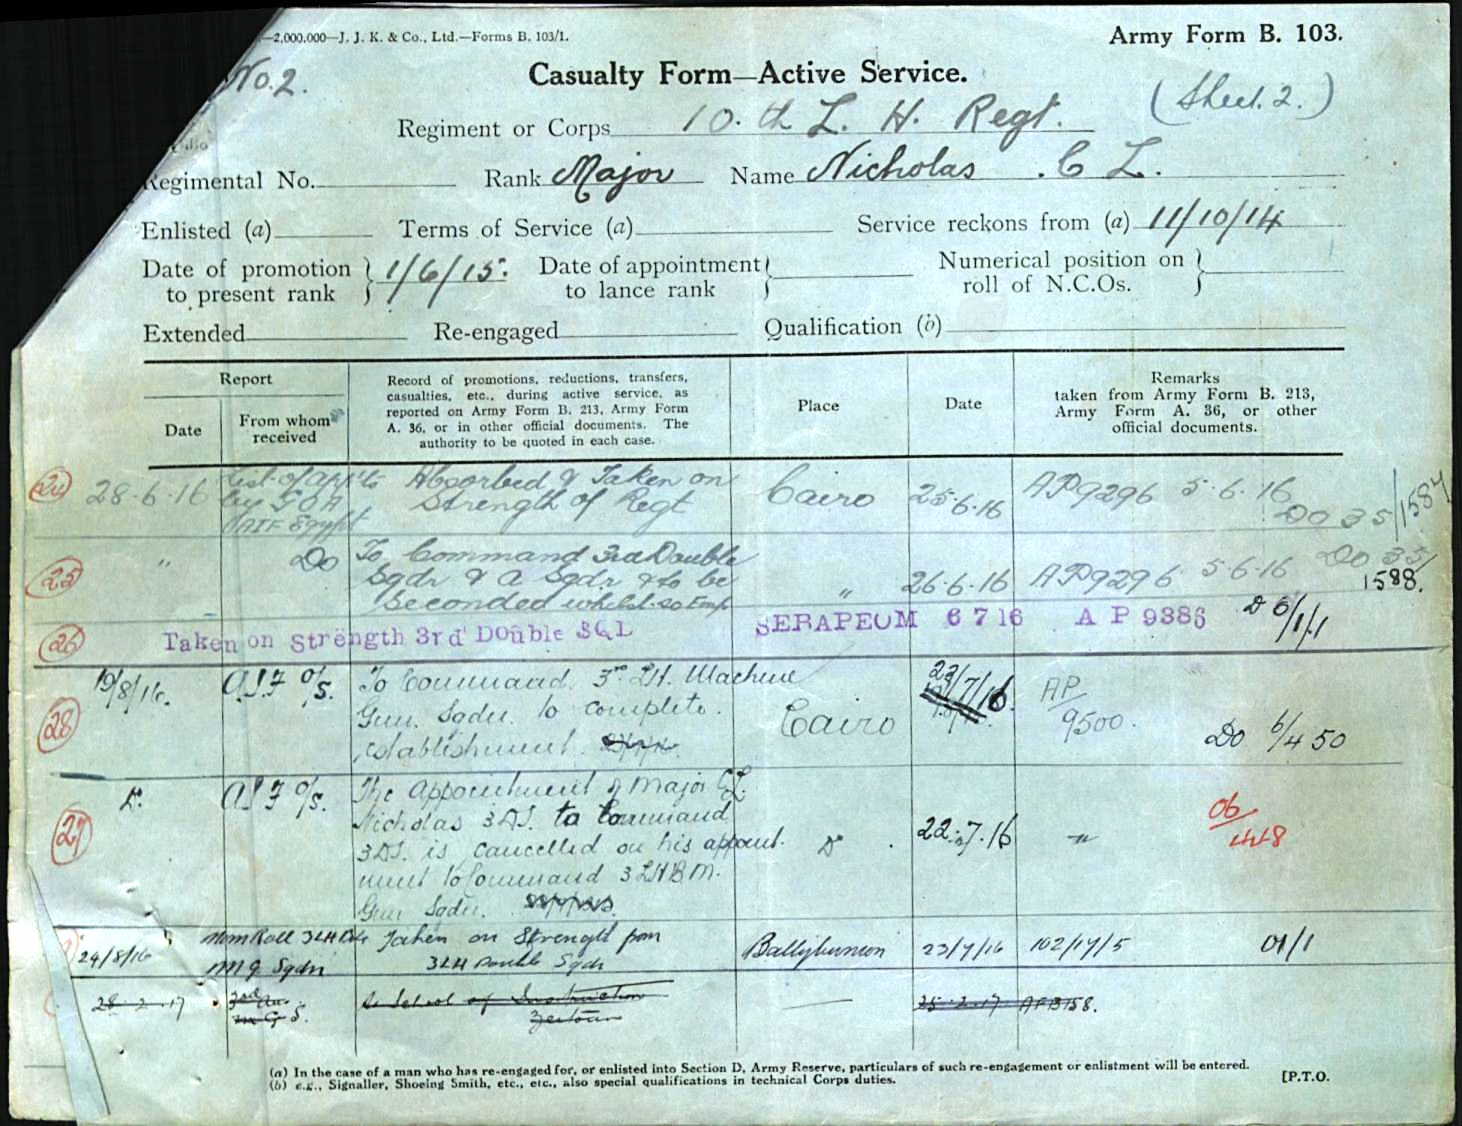 —2,000,000—J. J. K. & Co., Ltd.—Forms B. 103/1.
Army Form B. 103.
No. 2.
Casualty Form—Active Service.
(Sheet. 2.)
Regiment or Corps 10. th L. H. Regt.
Regimental No. Rank Major Name Nicholas . C L.
Enlisted (a) Terms of Service (a) Service reckons from (a) 11/10/14
Date of promotion to present rank } 1/6/15. Date of appointment to lance rank } Numerical position on roll of N.C.Os. }
Extended Re-engaged Qualification (b)
Report
Date
From whom received
Record of promotions, reductions, transfers,
casualties, etc., during active service, as
reported on Army Form B. 213, Army Form
A. 36, or in other official documents. The
authority to be quoted in each case.
Place
Date
Remarks
taken from Army Form B. 213,
Army Form A. 36, or other
official documents.
24 28-6-16 List of app'ts Absorbed & Taken on Cairo 25-6-16 AP9296 5-6-16
by G O A Strength of Regt Do 35/1584
AIF Egypt
25 " Do To Command 3rd Double " 26-6-16 AP9296 5-6-16 Do 35/1588.
Sqdr & A Sqdr & to be
Seconded whilst so Emp
26 Taken on Strength 3rd Double SQL SERAPEUM 6 7 16 A P 9386 D 6/1/1
28 19/8/16. A.I.F O/S. To Command 3rd LH. Machine Cairo 22/7/16. AP/9500.
Gun. Sqdn. to complete Do 6/4 50
establishment.
27 D. A I F O/S. The Appointment of Major C L. D 22.7.16 "
Nicholas 3 DS. to Command 06/448
3DS. is cancelled on his appoint-
ment to Command 3 LHB M.
Gun Sqdn.
24/8/16 Nom Roll 3 LH Bde Taken on Strength from Ballybunion 23/7/16 102/17/5 01/1
M G Sqdn 3 LH Double Sqdn
28-2-17 to School of Instruction 25-2-17 AFB158.
M G S. Zeitoun
(a) In the case of a man who has re-engaged for, or enlisted into Section D, Army Reserve, particulars of such re-engagement or enlistment will be entered.
(b) e.g., Signaller, Shoeing Smith, etc., etc., also special qualifications in technical Corps duties.
[P.T.O.